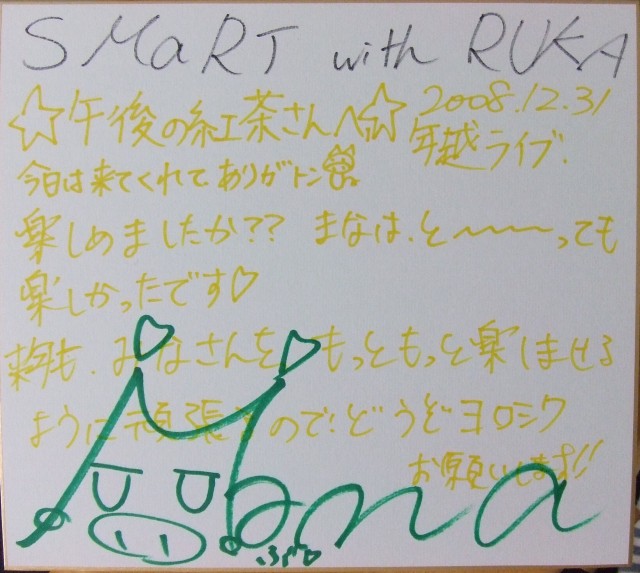 SMaRT with RUKA
☆午後の紅茶さんへ☆ 2008.12.31
年越ライブ.
今日は来てくれて、ありがトン
楽しめましたか?? まなは、と〜〜〜っても
楽しかったです♡
来年も、みなさんを もっともっと楽しませる
ように頑張るので!どうぞヨロシク
お願いします!!
Mana